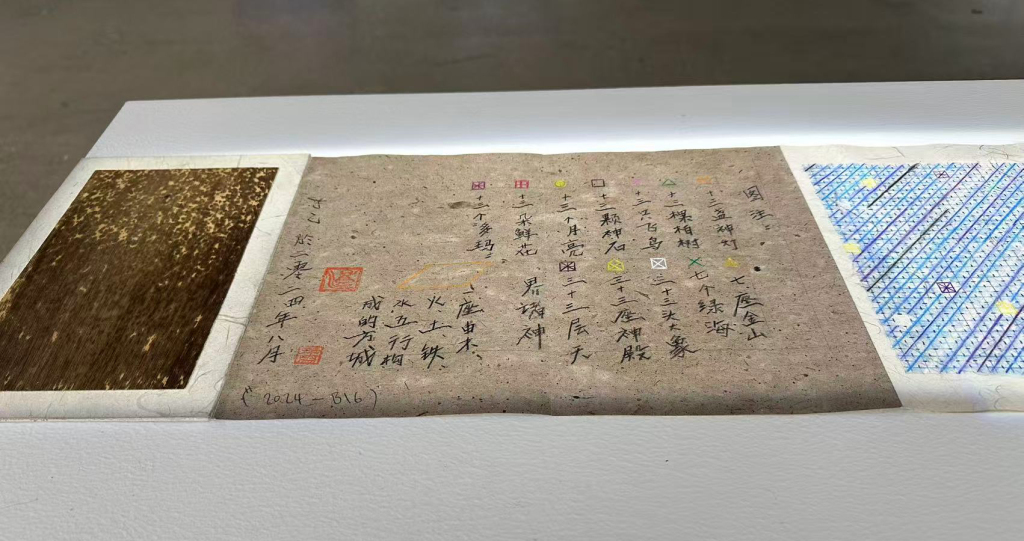 图注：
十三盏神灯
七座金山
十三棵柏树
七个绿海
十三只飞鸟
三十三头大象
十三颗神石
三十三座神殿
十三个月亮
三十三层天
界诸神
十三朵鲜花
十三个多玛
一座由木、
火、土、铁、
水五行构
成的方城
於二零二四年八月
(2024-B16)